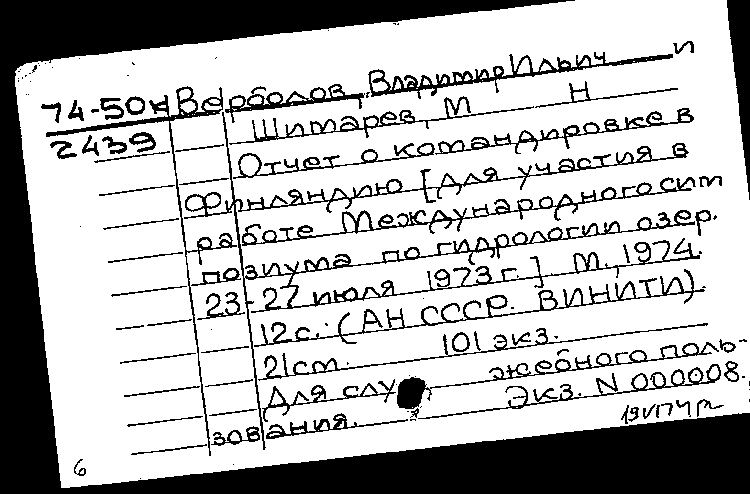 74-50к Верболов, Владимир Ильич и
2439 Шимарев, М Н
Отчет о командировке в
Финляндию [для участия в
работе Международного сим
позиума по гидрологии озер.
23-27 июля 1973 г.] М., 1974.
12 с. (АН СССР. ВИНИТИ).
21 см. 101 экз.
Для служебного поль-
зования. Экз. N 000008.
6